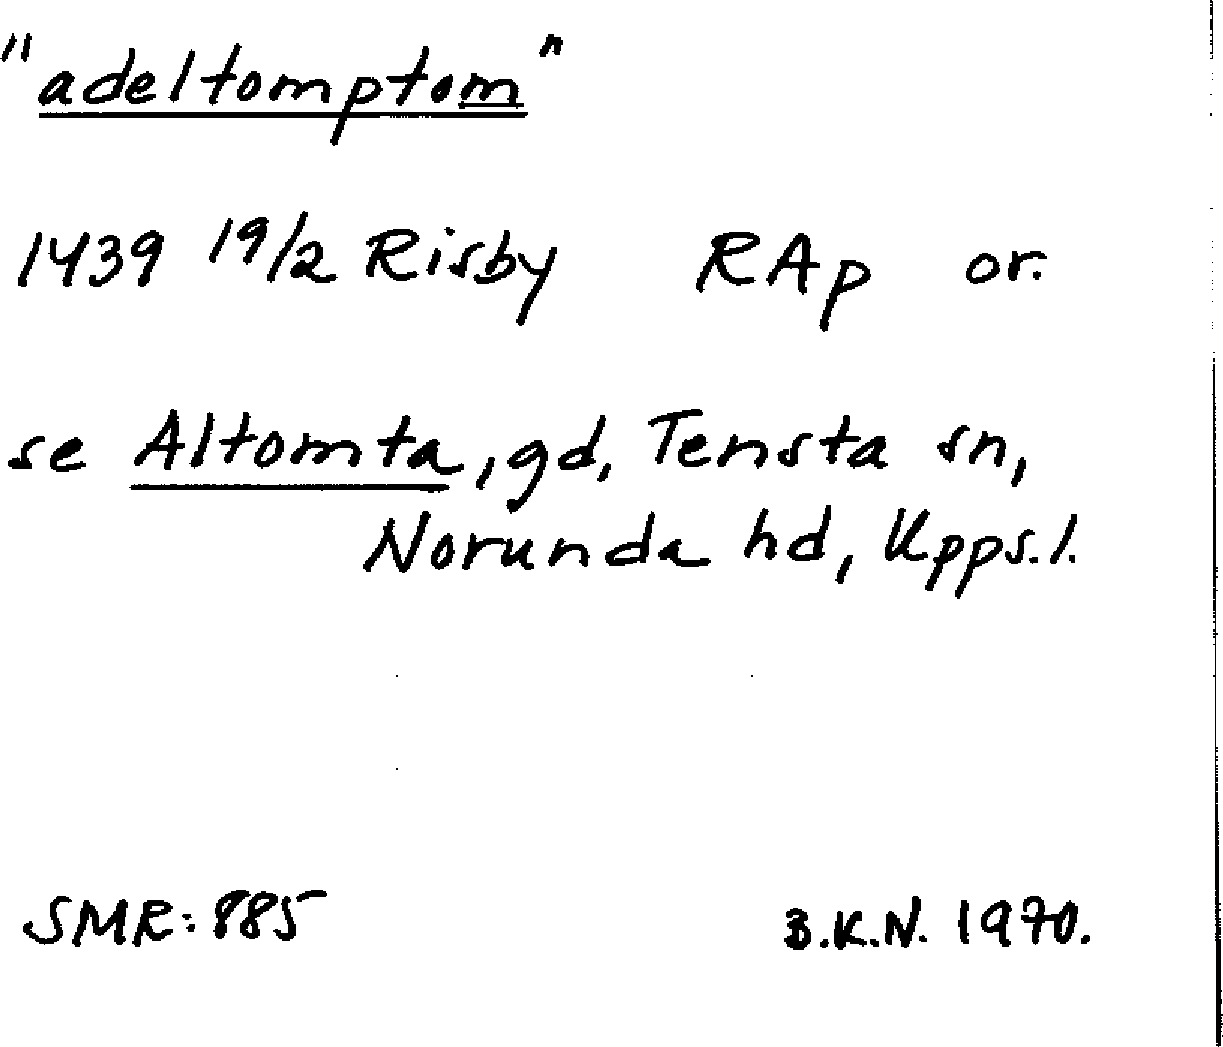 "adeltomptom"
1439 19/2 Risby RAp or.
se Altomta, gd, Tensta sn,
Norunda hd, Upps.l.
SMR: 885
B.K.N. 1970.